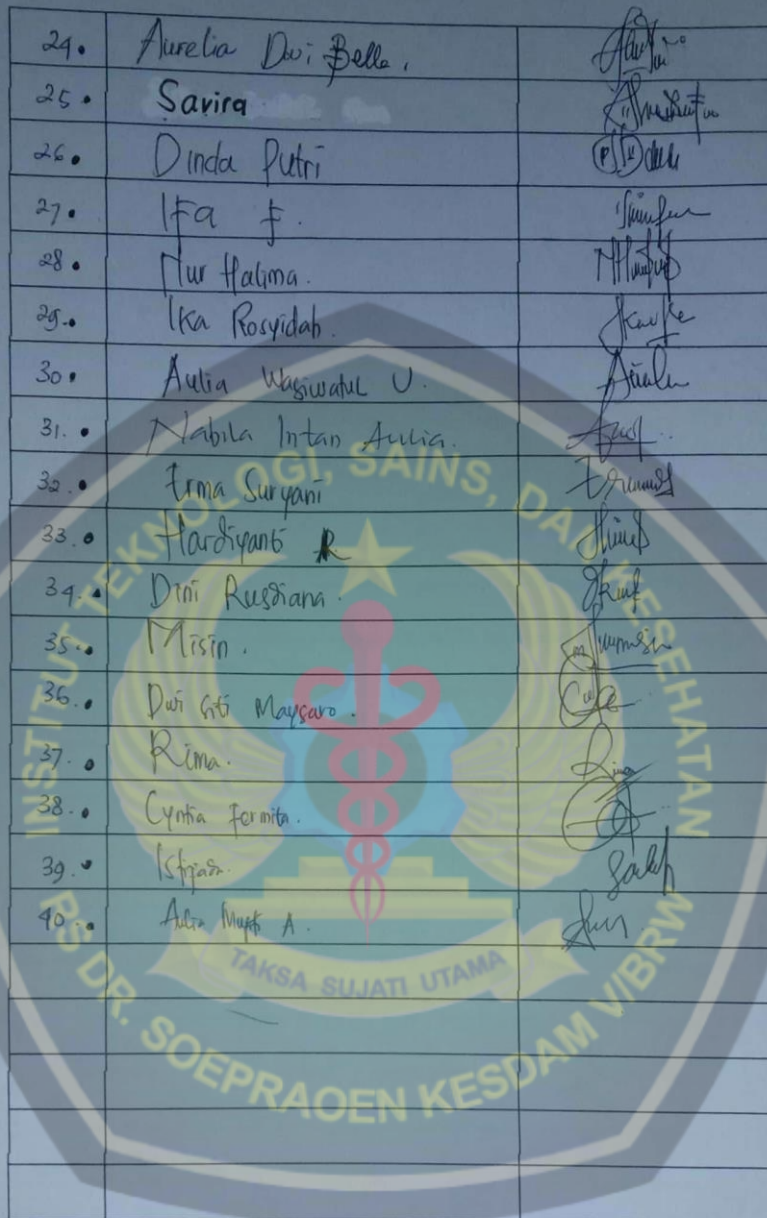 24. Aurelia Dwi Bella.
25. Savira
26. Dinda Putri
27. Ifa F.
28. Nur Halima.
29. Ika Rosyidah.
30. Aulia Wasiwatul U.
31. Nabila Intan Aulia.
32. Erma Suryani
33. Hardiyanti R
34. Dini Rusdiana.
35. Misin.
36. Dwi Siti Maysaro.
37. Rima.
38. Cyntia Fermita.
39.
40. Aulia A.
INSTITUT TEKNOLOGI, SAINS, DAN KESEHATAN
TAKSA SUJATI UTAMA
RS DR. SOEPRAOEN KESDAM V/BRW